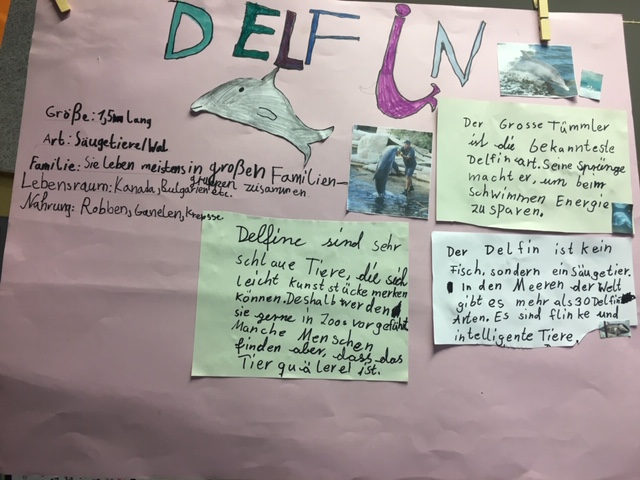 DELFiN
Größe: 1,5m lang
Art: Säugetiere/Wal
Familie: Sie leben meistens in großen Familien-
gruppen zusammen
Lebensraum: Kanada, Bulgarien etc.
Nahrung: Robben, Ganelen, Krepsse
Der Grosse Tümmler
ist die bekannteste
Delfinart. Seine Sprünge
macht er, um beim
schwimmen Energie
zu sparen.
Delfine sind sehr
schlaue Tiere, die sich
leicht kunststücke merken
können. Deshalb werden
sie gerne in Zoos vorgeführt
Manche Menschen
finden aber, dass das
Tierquälerei ist.
Der Delfin ist kein
Fisch, sondern ein säugetier.
In den Meeren der Welt
gibt es mehr als 30 Delfin
Arten. Es sind flinke und
intelligente Tiere.